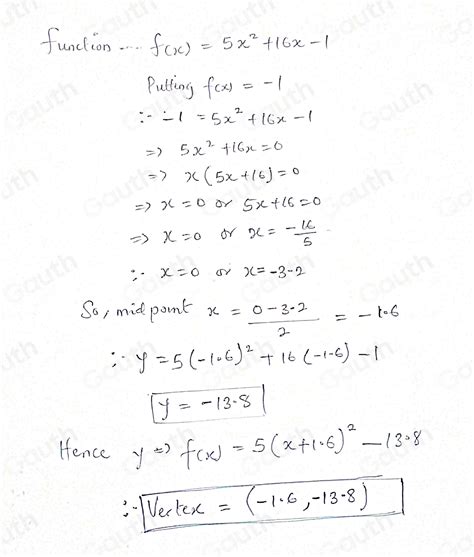 function .... f(x) = 5x² + 16x - 1
Putting f(x) = -1
∴ -1 = 5x² + 16x - 1
=> 5x² + 16x = 0
=> x(5x + 16) = 0
=> x = 0 or 5x + 16 = 0
=> x = 0 or x = -16/5
∴ x = 0 or x = -3.2
So, midpoint x = (0 - 3.2)/2 = -1.6
∴ y = 5(-1.6)² + 16(-1.6) - 1
y = -13.8
Hence y => f(x) = 5(x + 1.6)² - 13.8
∴ Vertex = (-1.6, -13.8)